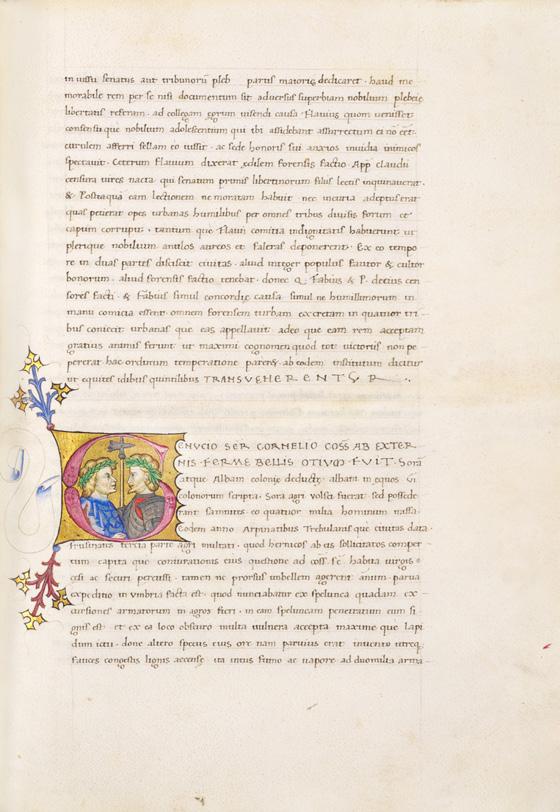 in iussu senatus aut tribunorū pleb partis maioris dedicaret · haud me
morabile rem per se nisi documentum sit adversus superbiam nobilium plebeie
libertatis referam · ad collegam egrum visendi causa Flavius quom venisset
consensuque nobilium adolescentium qui ibi assidebant assurrectum ei nō eēt ·
curulem afferri sellam eo iussit · ac sede honoris sui anxios invidia inimicos
spectavit · Ceterum flavium dixerat edilem forensis factio · App claudii
censura vires nacta · qui senatum primus libertinorum filiis lectis inquinaverat ·
& Posteaquā eam lectionem ne moratam habuit nec incuria adeptus erat
quas petierat opes urbanas humilibus per omnes tribus divisis forum et
capum corrupit · tantum que Flavii comitia indignitatis habuerunt ut
plerique nobilium anulos aureos et faleras deponerent · Ex eo tempo
re in duas partes discissit civitas · aliud integer populus fautor & cultor
bonorum · aliud forensis factio tenebat · donec Q. Fabius & P. decius cen
sores facti · & Fabius simul concordie causa simul ne humillimorum in
manu comicia essent omnem forensem turbam excretam in quatuor tri
bus coniecit urbanas que eas appellavit · adeo que eam rem acceptam
gratius animis ferunt ut maximi cognomen quod tot victoriis non pe
pererat hac ordinum temperatione pareret · ab eodem institutum dicitur
ut equites idibus quintilibus TRANSVEHERENTUR
ENUCIO SER CORNELIO COSS AB EXTER
NIS · FERME BELLIS OTIUM · FUIT · Sorā
atque Albam colonie deducte · albam in equos VI
colonorum scripta · Sora agri volsci fuerat · sed possede
rant samnites · eo quatuor milia hominum missa ·
Eodem anno Arpinatibus Trebulanisque civitas data
frusinates tercia parte agri multati · quod hernicos ab eis sollicitatos comper
tum · capita que coniurationis eius questione ad coss · sē habita virgis
cesi ac securi percussi · tamen ne prorsus imbellem agerent annum · parva
expeditio in umbria facta est · quod nunciabatur ex spelunca quadam ex
cursiones armatorum in agros fieri · in eam speluncam penetratum cum si
gnis est · et ex ea loco obscuro multa vulnera accepta maxime que lapi
dum ictu · donec altero specus eius ore nam pervius erat invento utreq;
fauces congestis lignis accense ita intus fumo ac vapore ad duomilia arma